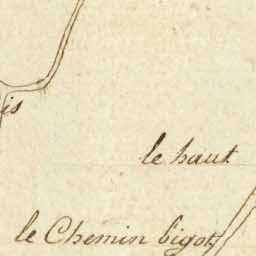 is
le haut
le Chemin bigot